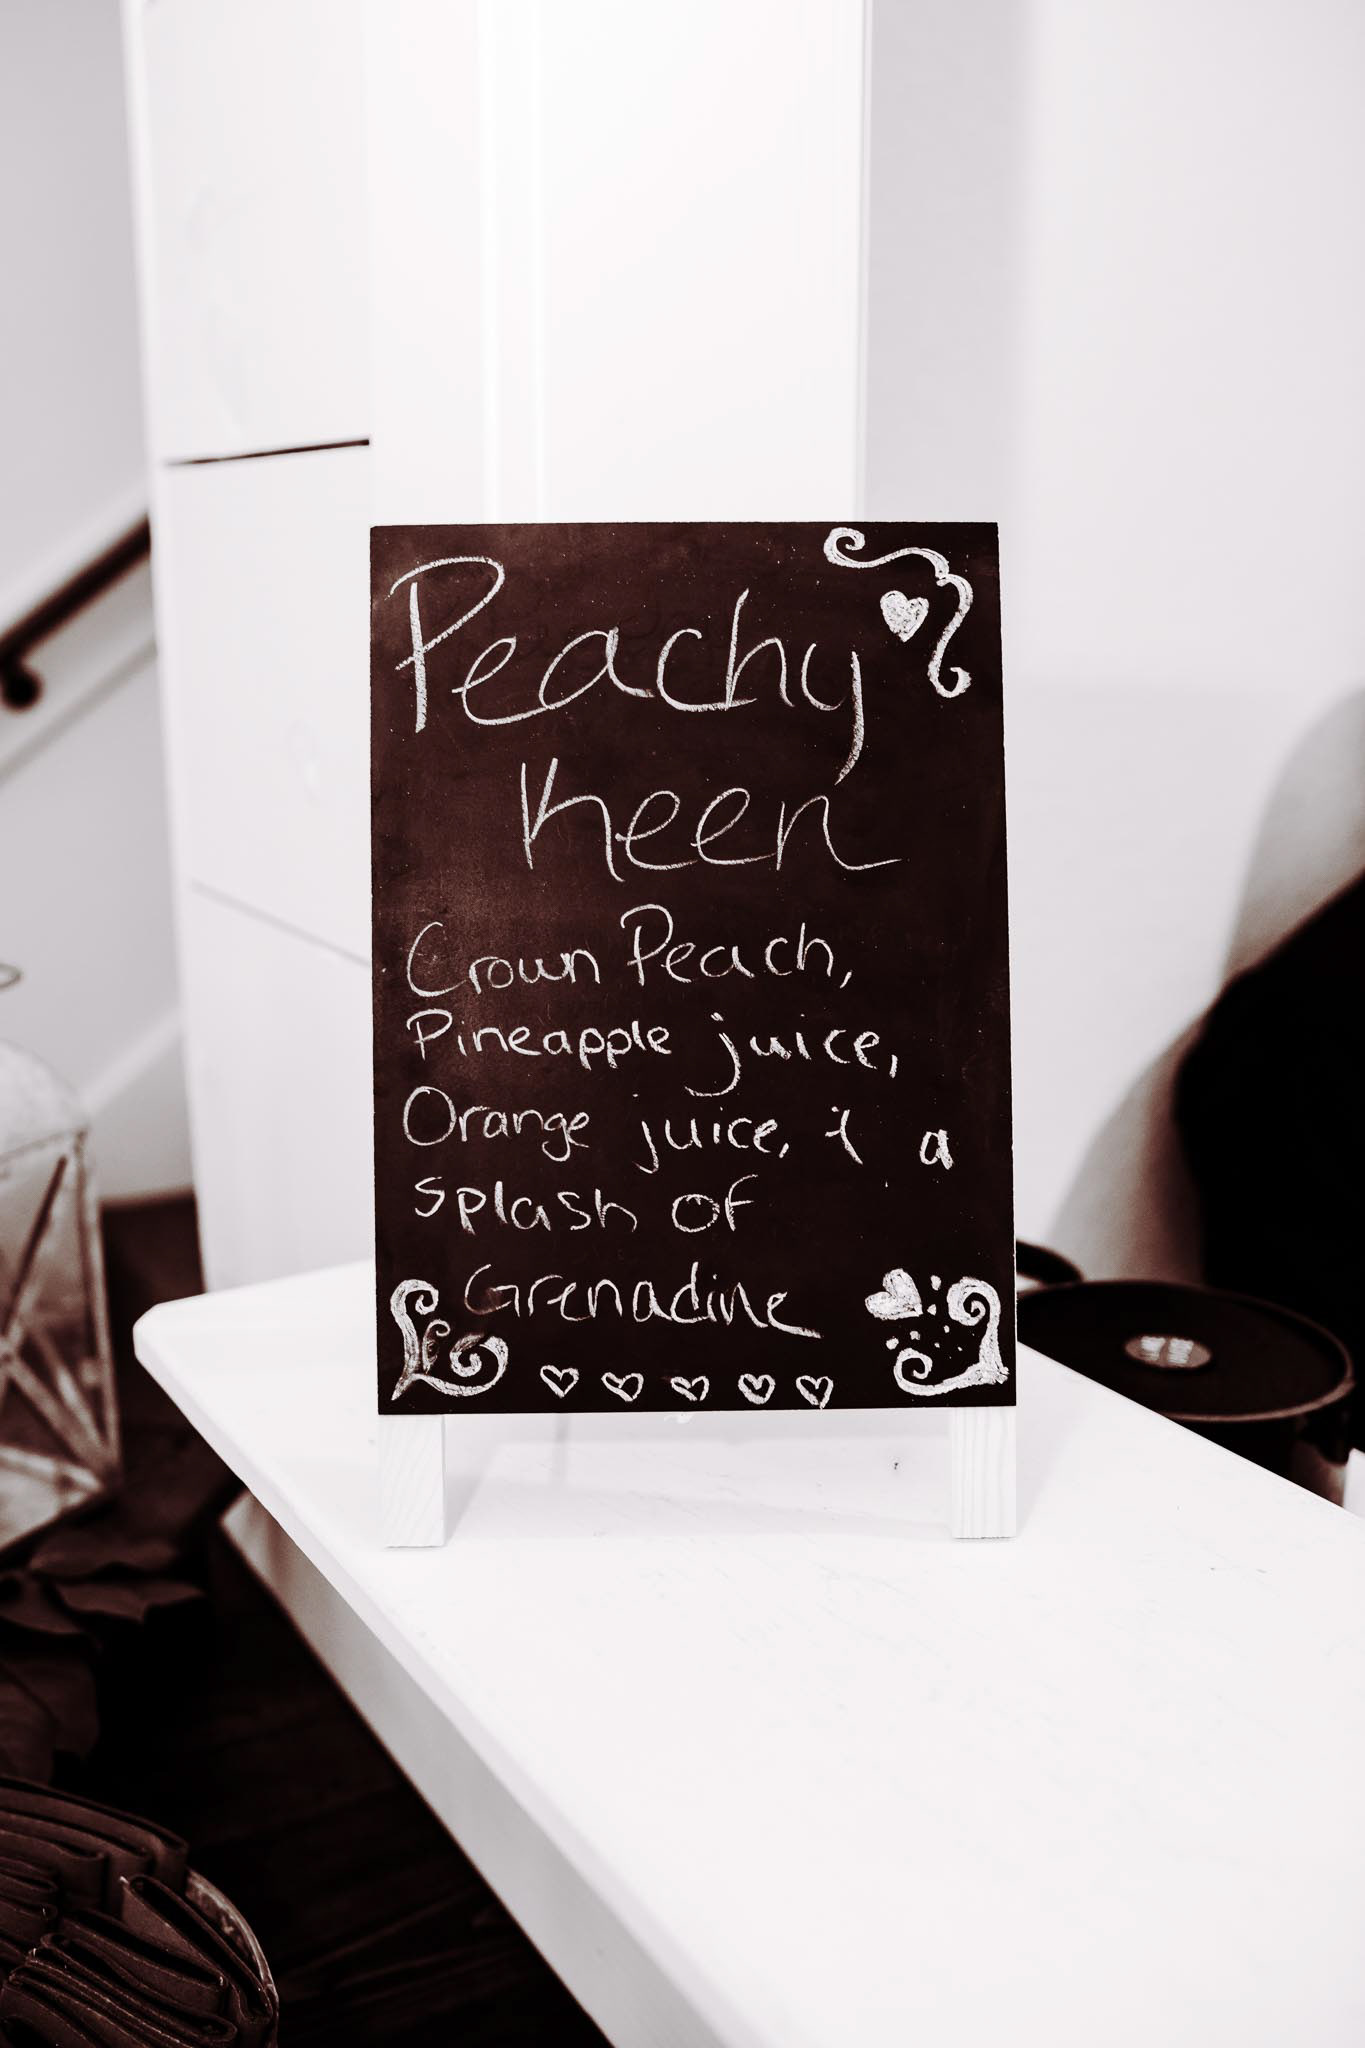 Peachy
Keen
Crown Peach,
Pineapple juice,
Orange juice, & a
splash of
Grenadine